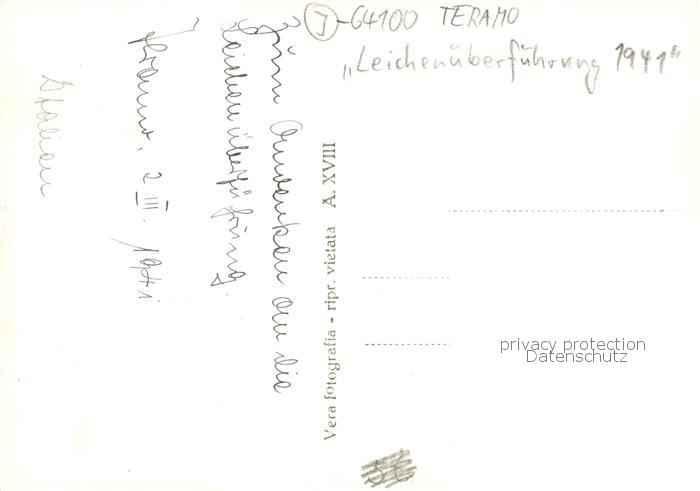 (I)-64100 TERAMO
„Leichenüberführung 1941"
Zum Andenken an die
Leichenüberführung.
Teramo, 2 III. 1941
Italien
Vera fotografia - ripr. vietata A. XVIII
privacy protection
Datenschutz